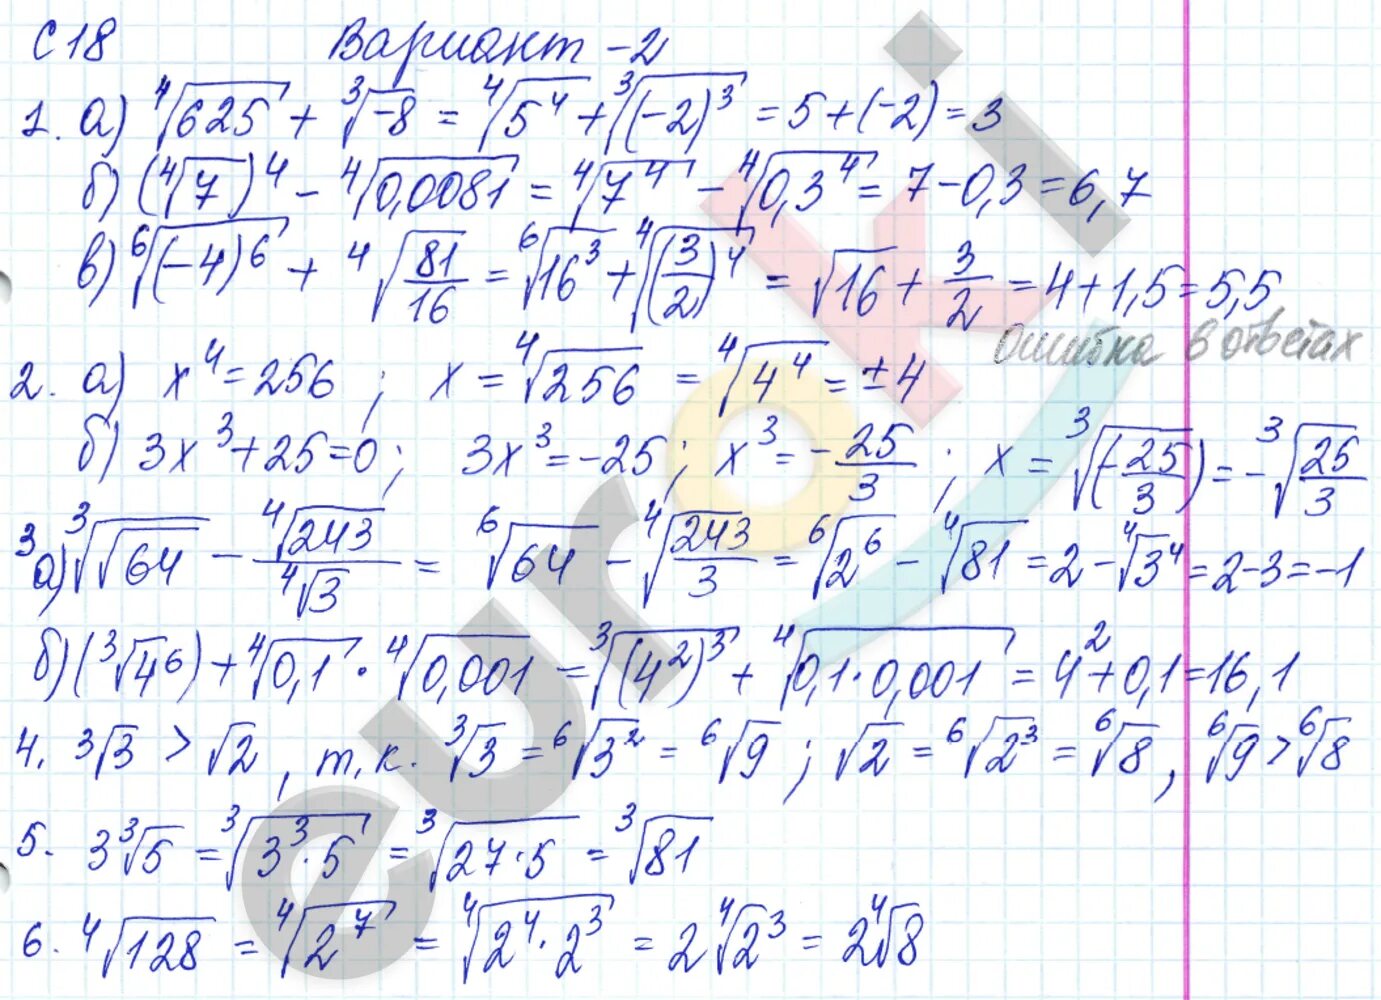 С 18 Вариант - 2
1. а) ⁴√625 + ³√-8 = ⁴√5⁴ + ³√(-2)³ = 5 + (-2) = 3
б) (⁴√7)⁴ - ⁴√0,0081 = ⁴√7⁴ - ⁴√0,3⁴ = 7 - 0,3 = 6,7
в) ⁶√(-4)⁶ + ⁴√(81/16) = ⁶√16³ + ⁴√(3/2)⁴ = √16 + 3/2 = 4 + 1,5 = 5,5
Ошибка в ответах
2. а) x⁴ = 256 ; x = ⁴√256 = ⁴√4⁴ = ±4
б) 3x³ + 25 = 0 ; 3x³ = -25 ; x³ = -25/3 ; x = ³√(-25/3) = -³√(25/3)
3 а) ³√√64 - ⁴√243/⁴√3 = ⁶√64 - ⁴√(243/3) = ⁶√2⁶ - ⁴√81 = 2 - ⁴√3⁴ = 2 - 3 = -1
б) (³√4⁶) + ⁴√0,1 · ⁴√0,001 = ³√(4²)³ + ⁴√0,1·0,001 = 4² + 0,1 = 16,1
4. ³√3 > √2 , т.к. ³√3 = ⁶√3² = ⁶√9 ; √2 = ⁶√2³ = ⁶√8 , ⁶√9 > ⁶√8
5. 3³√5 = ³√3³·5 = ³√27·5 = ³√81
6. ⁴√128 = ⁴√2⁷ = ⁴√2⁴·2³ = 2⁴√2³ = 2⁴√8
euroki